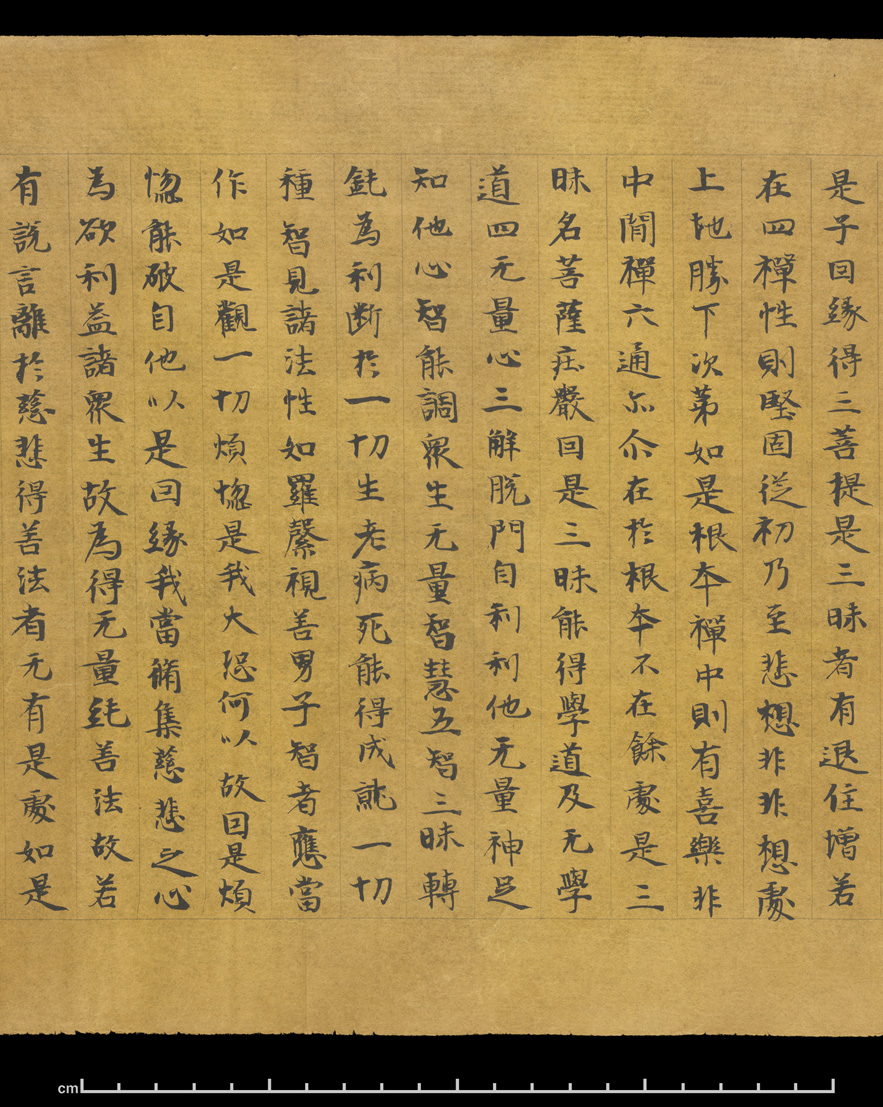 是子因緣得三菩提是三昧者有退住增若
在四禪性則堅固從初乃至悲想非非想處
上地勝下次第如是根本禪中則有喜樂非
中間禪六通亦尒在於根本不在餘處是三
昧名菩薩莊嚴因是三昧能得學道及无學
道四无量心三解脫門自利利他无量神足
知他心智能調衆生无量智慧五智三昧轉
鈍為利斷於一切生老病死能得成就一切
種智見諸法性知羅縠視善男子智者應當
作如是觀一切煩惱是我大怨何以故因是煩
惱能破自他以是因緣我當脩集慈悲之心
為欲利益諸衆生故為得无量純善法故若
有說言離於慈悲得善法者无有是處如是
cm